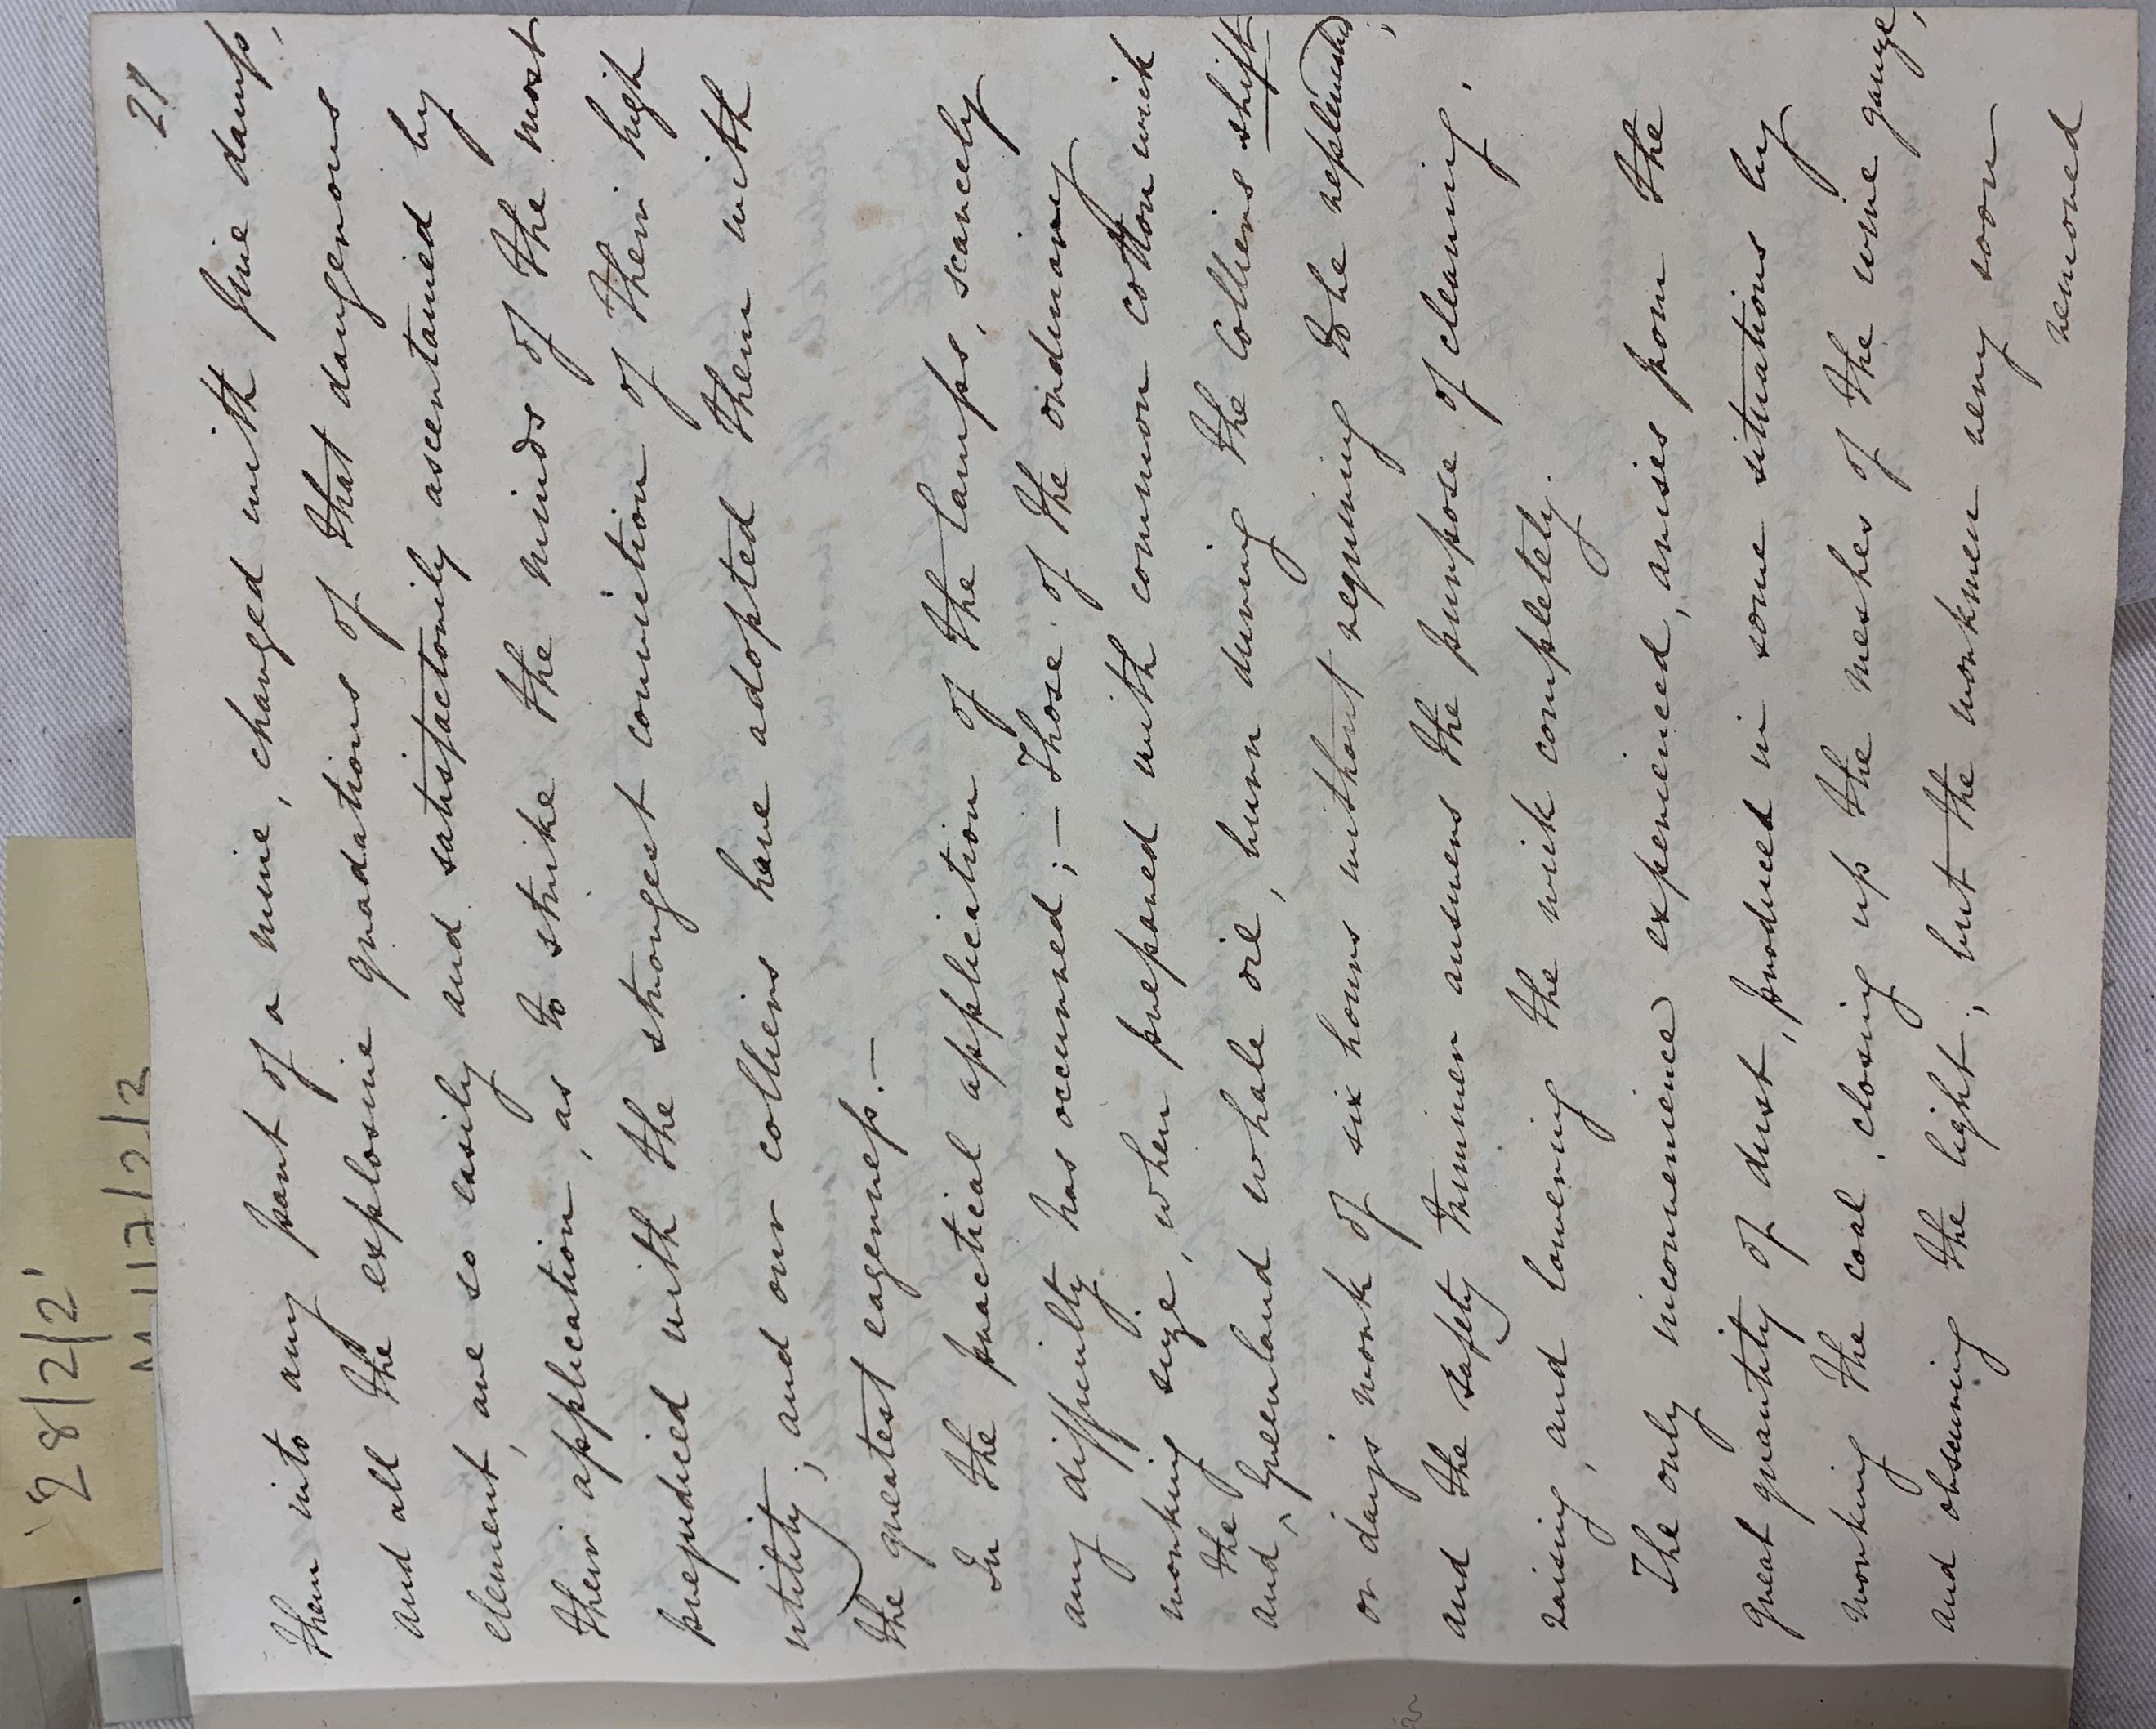 28/2/2'
M112/2/2
21
them into any part of a mine, charged with fire damp,
and all the explosive gradations of that dangerous
element, are so easily and satisfactorily ascertained by
their application, as to strike the minds of the most
prejudiced with the strongest conviction of their high
utility; and our colliers have adopted them with
the greatest eagerness.—
In the practical application of the lamps, scarcely
any difficulty has occurred;— Those of the ordinary
working size, when prepared with common cotton wick
and ^ the Greenland whale oil, burn during the Colliers shift
or days work of six hours without requiring to be replenished;
and the safety trimmer answers the purpose of cleaning,
raising, and lowering the wick completely.
The only inconvenience experienced, arises from the
great quantity of dust, produced in some situations by
working the coal, closing up the meshes of the wire gauze,
and obscuring the light; but the workmen very soon
removed